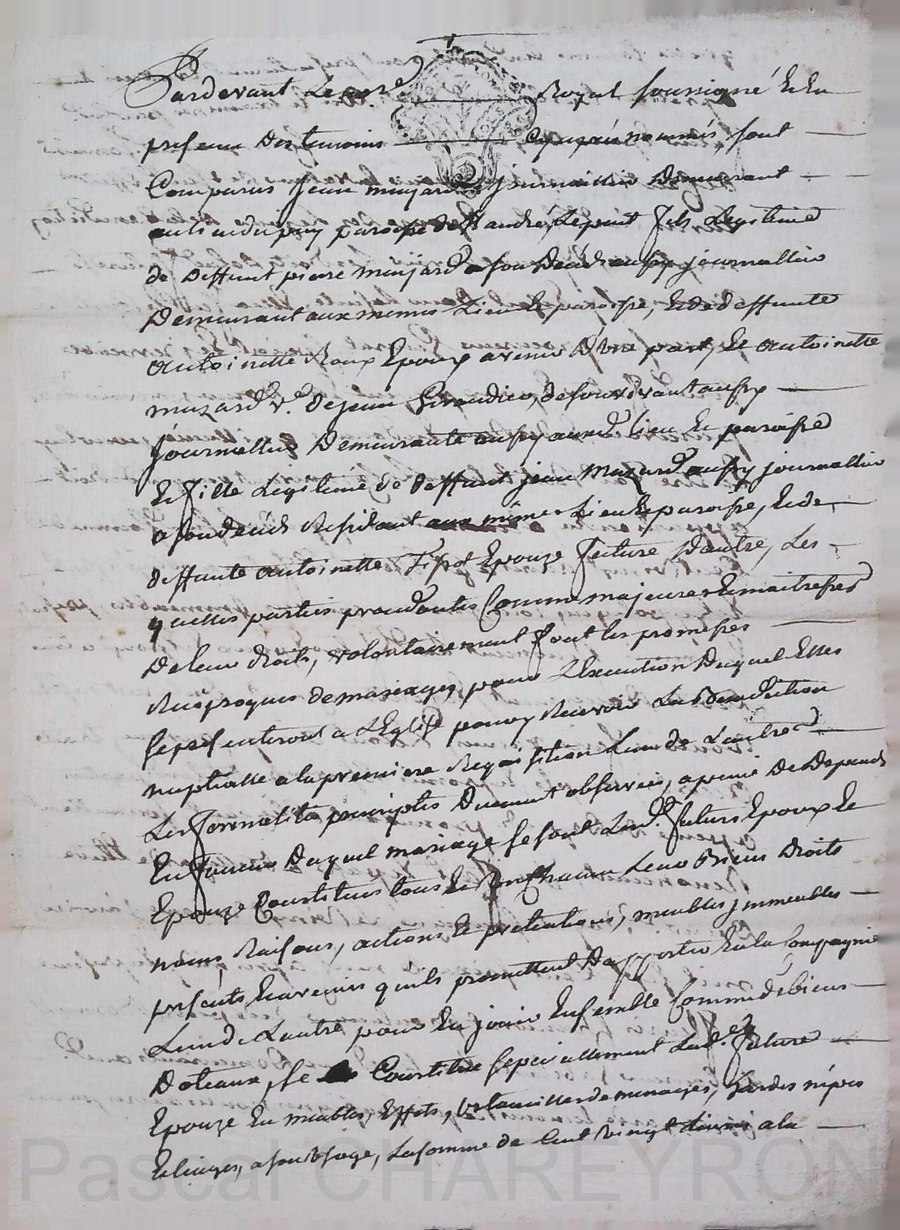 Pardevant Le notre Royal soussigné Et En
presence Des temoins cy apres nommés, sont
Comparus Jean mujard journallier Demeurant
paroisse de St andré Lepuit fils Legitime
de Deffunt pierre Mujard a son Decéd aussy journallier
Demeurant aux memes Lieu Et paroisse, Et de deffunte
antoinette Roux Epoux avenir D'une part, Et antoinette
muzard Ve. de jean Giraudier, de son vivant aussy
journallier Demeurante aussy audt. lieu Et paroisse
Et fille Legitime de deffunt jean Muzard aussy journallier
a son decéd Residant aux même Lieu Et paroisse, Et de
deffunte antoinette Epouze future D'autre, Les
quelles parties procedantes Comme majeures Et maitresses
De leur droits, volontairement font les promesses
Reciproques de mariage, pour L'Execution Duquel Elles
se presenteront a L'Eglise pour y Recevoir La Benediction
nuptialle a la premiere Requisition L'un de L'autre
Les formalités prescriptes Duement observées, a peine De Depends
En faveur Duquel mariage se sont Lesd. futurs Epoux Et
Epouze Constitués tous Et un Chacun Leurs Biens Droits
noms Raisons, actions Et pretentions, meubles immeubles
presents Et avenirs qu'ils promettent D'apporter En la Compagnie
L'un de L'autre pour En jouir Ensemble Comme de biens
Doteaux, se Constitue specialement Lade. future
Epouze En meubles, Effets, de menages, hardes nipes
Et linges, a son Usage, La somme de Cent vingt Livres a la
Pascal CHAREYRON